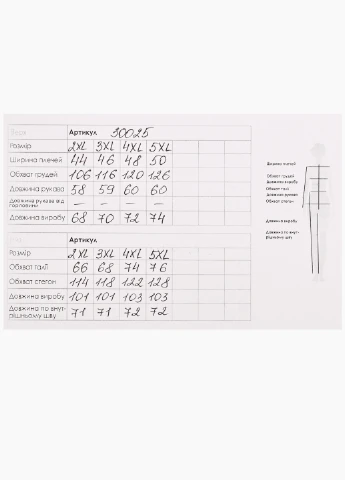 Артикул 30025
Розмір 2XL 3XL 4XL 5XL
Ширина плечей 44 46 48 50
Обхват грудей 106 116 120 126
Довжина рукава 58 59 60 60
Довжина рукава від горловини — — — —
Довжина виробу 68 70 72 74
Артикул
Розмір 2XL 3XL 4XL 5XL
Обхват талії 66 68 74 76
Обхват стегон 114 118 122 128
Довжина виробу 101 101 103 103
Довжина по внут-
рішньому шву 71 71 72 72
Ширина плечей
Обхват грудей
Довжина виробу
Обхват талії
Довжина рукава
Обхват стегон
Довжина виробу
Довжина по внут-
рішньому шву